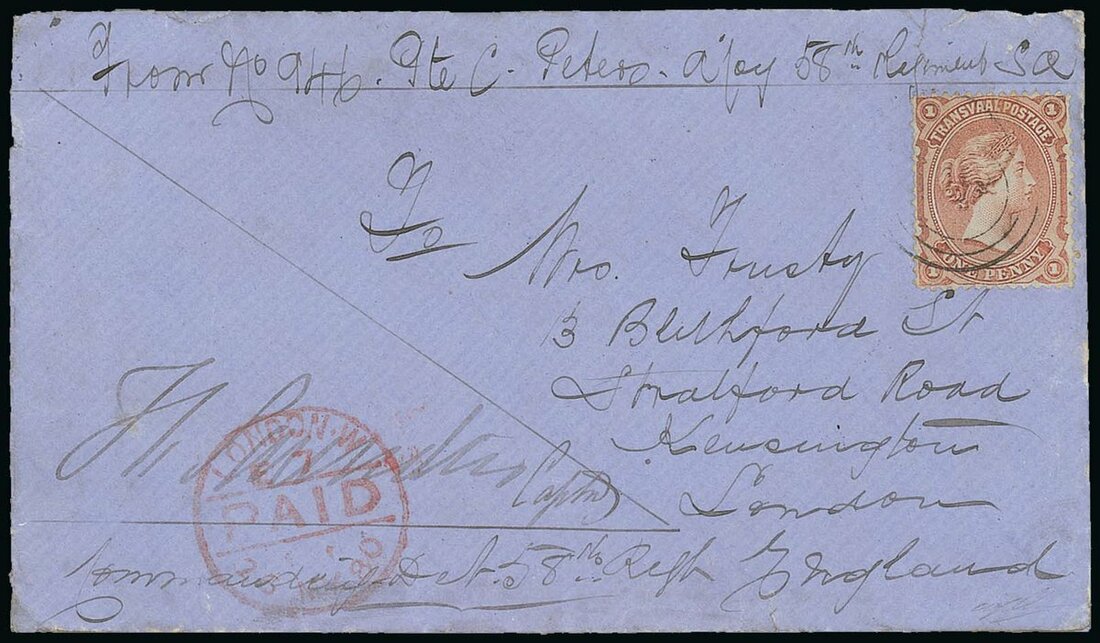 From No 946. Pte C. Peters. a Coy 58th Regiment SA
1 TRANSVAAL POSTAGE 1
1 ONE PENNY 1
To
Mrs. Trusty
13 Blithford St
Stratford Road
Kensington
London
England
LONDON. W
PAID
Captn
Commanding Det. 58th Regt